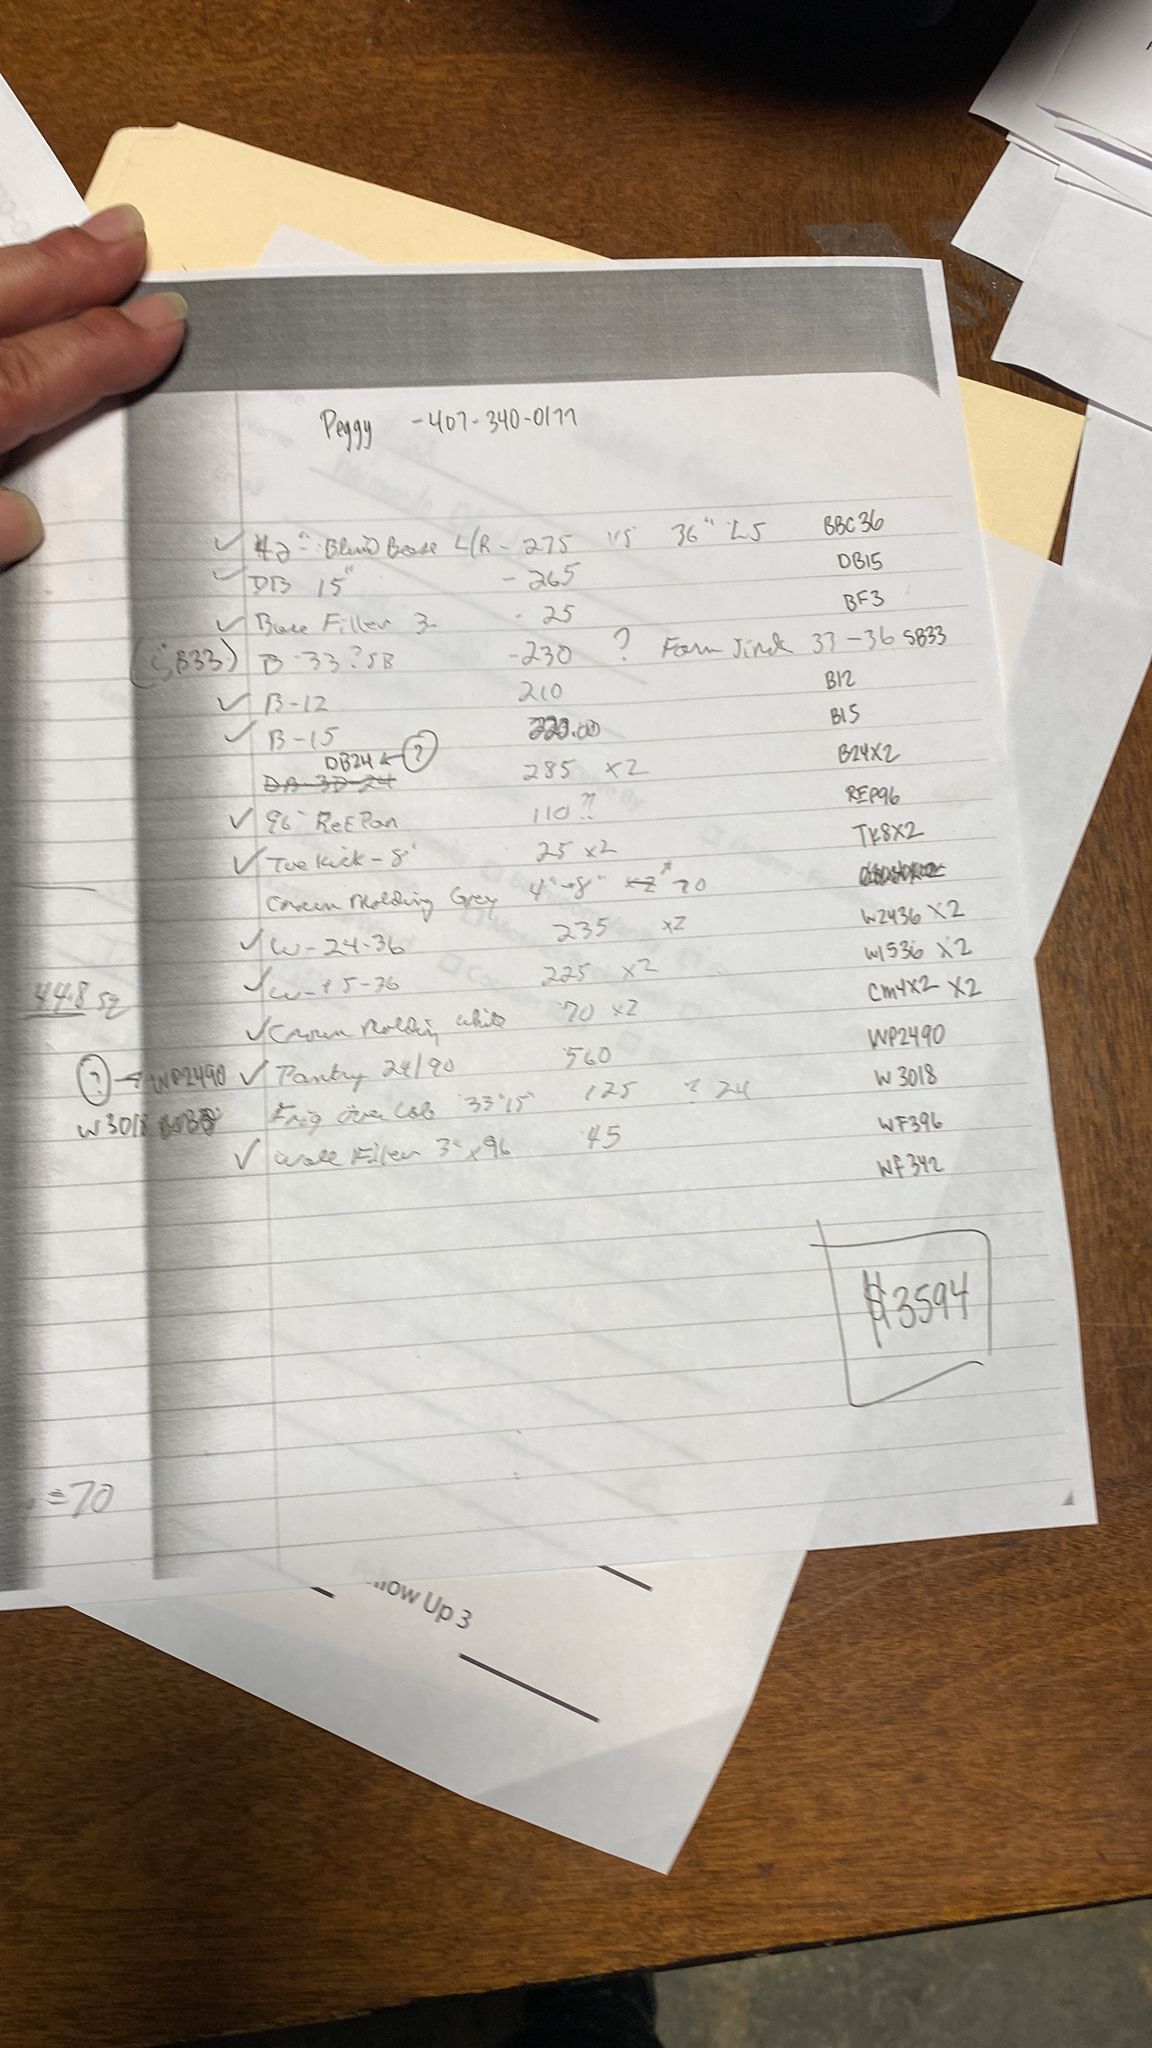 Peggy - 407-340-0177
✓ 42" Blind Base L/R - 275 vs 36" LS BBC36
✓ DB 15" - 265 DB15
✓ Base Filler 3 - 25 BF3
(SB33) B-33?SB - 230 ? Farm Sink 33-36 SB33
✓ B-12 210 B12
✓ B-15 220.00 B15
DB24 ← ?
DB-3D-24 285 x2 B24X2
✓ 96" Ref Pan 110?? REP96
✓ Toe Kick - 8' 25 x2 TK8X2
Crown Molding Grey 4"-8" x2 70
✓ W-24-36 235 x2 W2436 X2
✓ W-15-36 225 x2 W1536 X2
44.8 sq
✓ Crown Molding white 70 x2 CM4X2 X2
? → WP2490 ✓ Pantry 24/90 560 WP2490
W3018 Frig Over Cab 33"15" 125 ? 24 W3018
✓ Wall Filler 3" x 96 45 WF396
WF342
$3594
=70
Follow Up 3